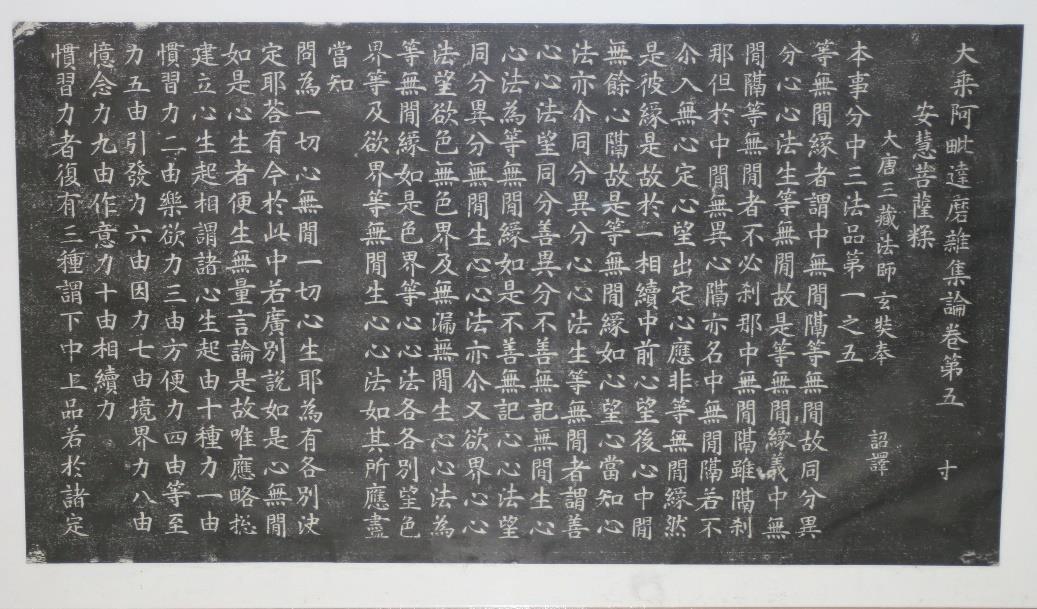 大乘阿毗達磨雜集論卷第五 寸
安慧菩薩糅
大唐三藏法師玄奘奉 詔譯
本事分中三法品第一之五
等無閒緣者謂中無閒隔等無閒故同分異
分心心法生等無閒故是等無閒緣義中無
閒隔等無閒者不必刹那中無閒隔雖隔刹
那但於中閒無異心隔亦名中無閒隔若不
尒入無心定心望出定心應非等無閒緣然
是彼緣是故於一相續中前心望後心中閒
無餘心隔故是等無閒緣如心望心當知心
法亦尒同分異分心心法生等無閒者謂善
心心法望同分善異分不善無記無閒生心
心法為等無閒緣如是不善無記心心法望
同分異分無閒生心心法亦尒又欲界心心
法望欲色無色界及無漏無閒生心心法為
等無閒緣如是色界等心心法各各別望色
界等及欲界等無閒生心心法如其所應盡
當知
問為一切心無閒一切心生耶為有各別決
定耶荅有今於此中若廣別說如是心無閒
如是心生者便生無量言論是故唯應略揔
建立心生起相謂諸心生起由十種力一由
慣習力二由樂欲力三由方便力四由等至
力五由引發力六由因力七由境界力八由
憶念力九由作意力十由相續力
慣習力者復有三種謂下中上品若於諸定